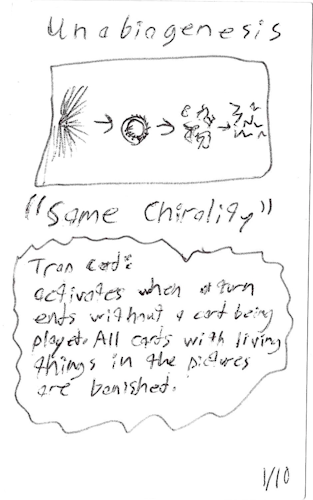 Unabiogenesis
"Same Chirality"
Trap Card:
activates when a turn
ends without a card being
played. All cards with living
things in the pictures
are banished.
1/10